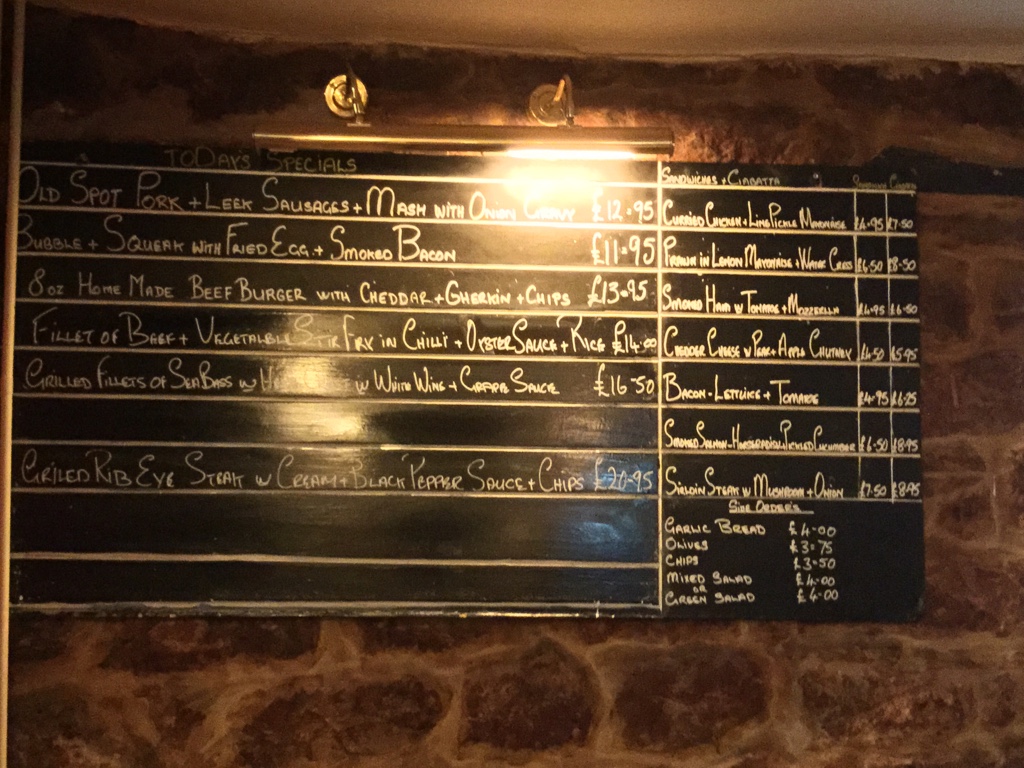 TODAYS SPECIALS
OLD SPOT PORK + LEEK SAUSAGES + MASH WITH ONION GRAVY £12.95
BUBBLE + SQUEAK WITH FRIED EGG + SMOKED BACON £11.95
8 OZ HOME MADE BEEF BURGER WITH CHEDDAR + GHERKIN + CHIPS £13.95
FILLET OF BEEF + VEGETABLE STIR FRY IN CHILLI + OYSTER SAUCE + RICE £14.00
GRILLED FILLETS OF SEABASS W W WHITE WINE + GRAPE SAUCE £16.50
GRILLED RIB EYE STEAK W CREAM + BLACK PEPPER SAUCE + CHIPS £20.95
SANDWICHES + CIABATTA
CURRIED CHICKEN + LIME PICKLE MAYONAISE £4.95 £7.50
PRAWN IN LEMON MAYONAISE + WATER CRESS £6.50 £8.50
SMOKED HAM W TOMATOE + MOZZERELLA £4.95 £6.50
CHEDDER CHEESE W PEAR + APPLE CHUTNEY £4.50 £5.95
BACON - LETTUCE + TOMATOE £4.95 £6.25
SMOKED SALMON - HORSERADISH, PICKLED CUCUMBER £6.50 £8.95
SIRLOIN STEAK W MUSHROOM + ONION £7.50 £8.95
SIDE ORDERS
GARLIC BREAD £4.00
OLIVES £3.75
CHIPS £3.50
MIXED SALAD £4.00
OR
GREEN SALAD £4.00